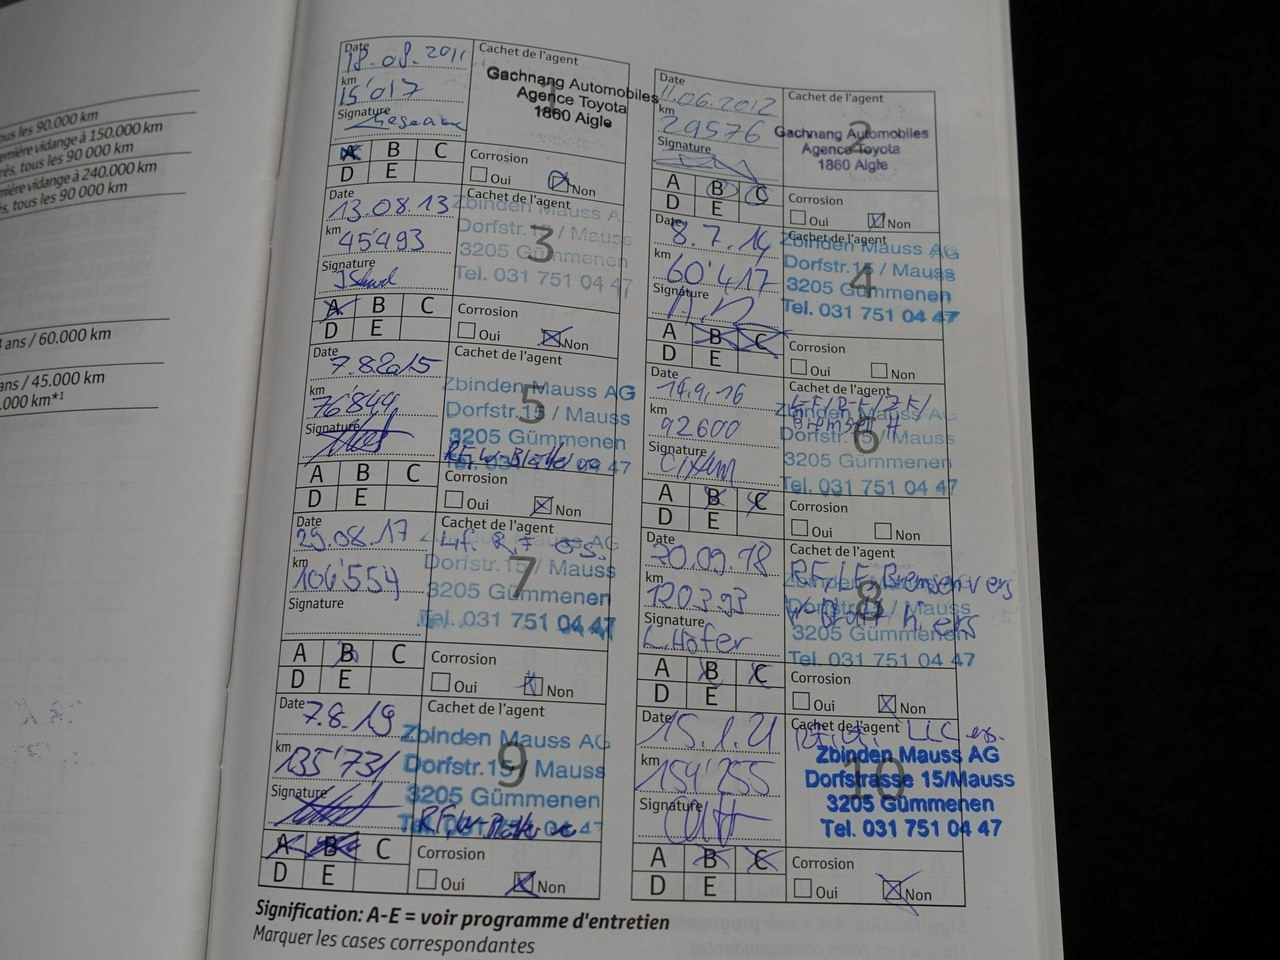 ous les 90.000 km
emière vidange à 150.000 km
rés, tous les 90 000 km
mière vidange à 240.000 km
s, tous les 90 000 km
ans / 60.000 km
ans / 45.000 km
.000 km*1
Date
18.08.2011
km
15'017
Signature
A B C
D E
Cachet de l'agent
1
Gachnang Automobiles
Agence Toyota
1860 Aigle
Corrosion
Oui Non
Date
11.06.2012
km
29576
Signature
A B C
D E
Cachet de l'agent
2
Gachnang Automobiles
Agence Toyota
1860 Aigle
Corrosion
Oui Non
Date
13.08.13
km
45'493
Signature
A B C
D E
Cachet de l'agent
3
Zbinden Mauss A
Dorfstr. 15 / Mauss
3205 Gümmenen
Tel. 031 751 04 47
Corrosion
Oui Non
Date
8.7.14
km
60'417
Signature
A B C
D E
Cachet de l'agent
4
Zbinden Mauss AG
Dorfstr. 15 / Mauss
3205 Gümmenen
Tel. 031 751 04 47
Corrosion
Oui Non
Date
7.8.2015
km
76'844
Signature
A B C
D E
Cachet de l'agent
5
Zbinden Mauss AG
Dorfstr. 15 / Mauss
3205 Gümmenen
47
Corrosion
Oui Non
Date
14.9.16
km
92600
Signature
A B C
D E
Cachet de l'agent
6
Zbinden Mauss AG
Dorfstr. 15 / Mauss
3205 Gümmenen
Tel. 031 751 04 47
Corrosion
Oui Non
Date
29.08.17
km
106'554
Signature
A B C
D E
Cachet de l'agent
7
AG
Dorfstr. 15 / Mauss
3205 Gümmenen
Tel. 031 751 04 47
Corrosion
Oui Non
Date
20.09.18
km
120393
Signature
L. Hofer
A B C
D E
Cachet de l'agent
8
RF, LF, Bremsen vers
3205 Gümmenen
Tel. 031 751 04 47
Corrosion
Oui Non
Date
7.8.19
km
135'731
Signature
A B C
D E
Cachet de l'agent
9
Zbinden Mauss AG
Dorfstr. 15 / Mauss
3205 Gümmenen
Corrosion
Oui Non
Date
15.1.21
km
154'255
Signature
A B C
D E
Cachet de l'agent
LLC ers.
10
Zbinden Mauss AG
Dorfstrasse 15/Mauss
3205 Gümmenen
Tel. 031 751 04 47
Corrosion
Oui Non
Signification: A-E = voir programme d'entretien
Marquer les cases correspondantes